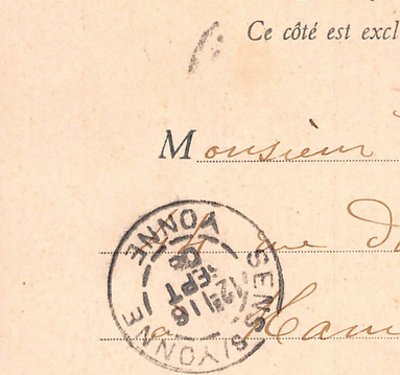 Ce côté est excl
Monsieur
14 rue d
a Ham
SENS S/YONNE
YONNE
12 16
SEPT
06